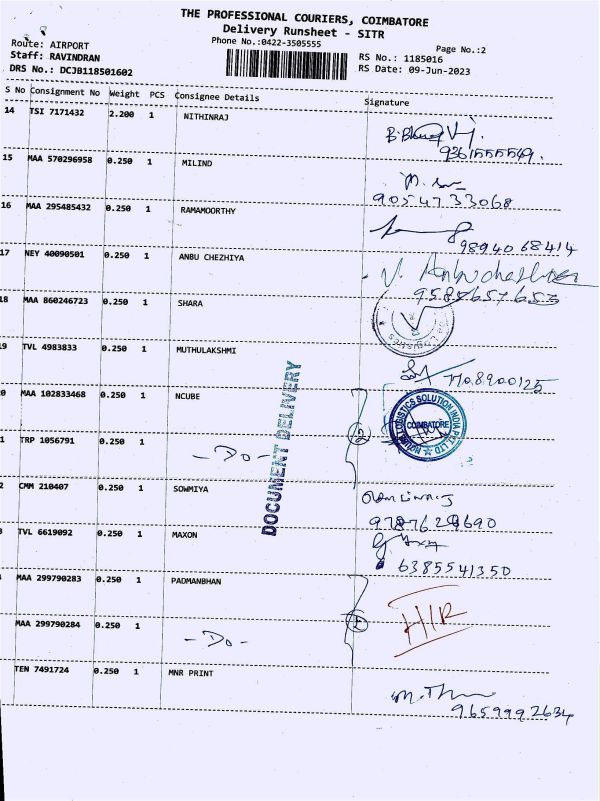 THE PROFESSIONAL COURIERS, COIMBATORE
Delivery Runsheet - SITR
Phone No.:0422-3505555
Page No.:2
Route: AIRPORT
Staff: RAVINDRAN
DRS No.: DCJB118501602
RS No.: 1185016
RS Date: 09-Jun-2023
S No Consignment No Weight PCS Consignee Details Signature
14 TSI 7171432 2.200 1 NITHINRAJ
9361555549.
15 MAA 570296958 0.250 1 MILIND
90547 33068
16 MAA 295485432 0.250 1 RAMAMOORTHY
98940 68414
17 NEY 40090501 0.250 1 ANBU CHEZHIYA
9588657653
18 MAA 860246723 0.250 1 SHARA
9 TVL 4983833 0.250 1 MUTHULAKSHMI
0 MAA 102833468 0.250 1 NCUBE
LOGISTICS SOLUTION INDIA PVT. LTD
COIMBATORE
DOCUMENT DELIVERY
1 TRP 1056791 0.250 1 -Do-
2
2 CMM 210407 0.250 1 SOWMIYA
9787629690
TVL 6619092 0.250 1 MAXON
6385541350
MAA 299790283 0.250 1 PADMANBHAN
H/R
MAA 299790284 0.250 1 -Do-
TEN 7491724 0.250 1 MNR PRINT
9659992634